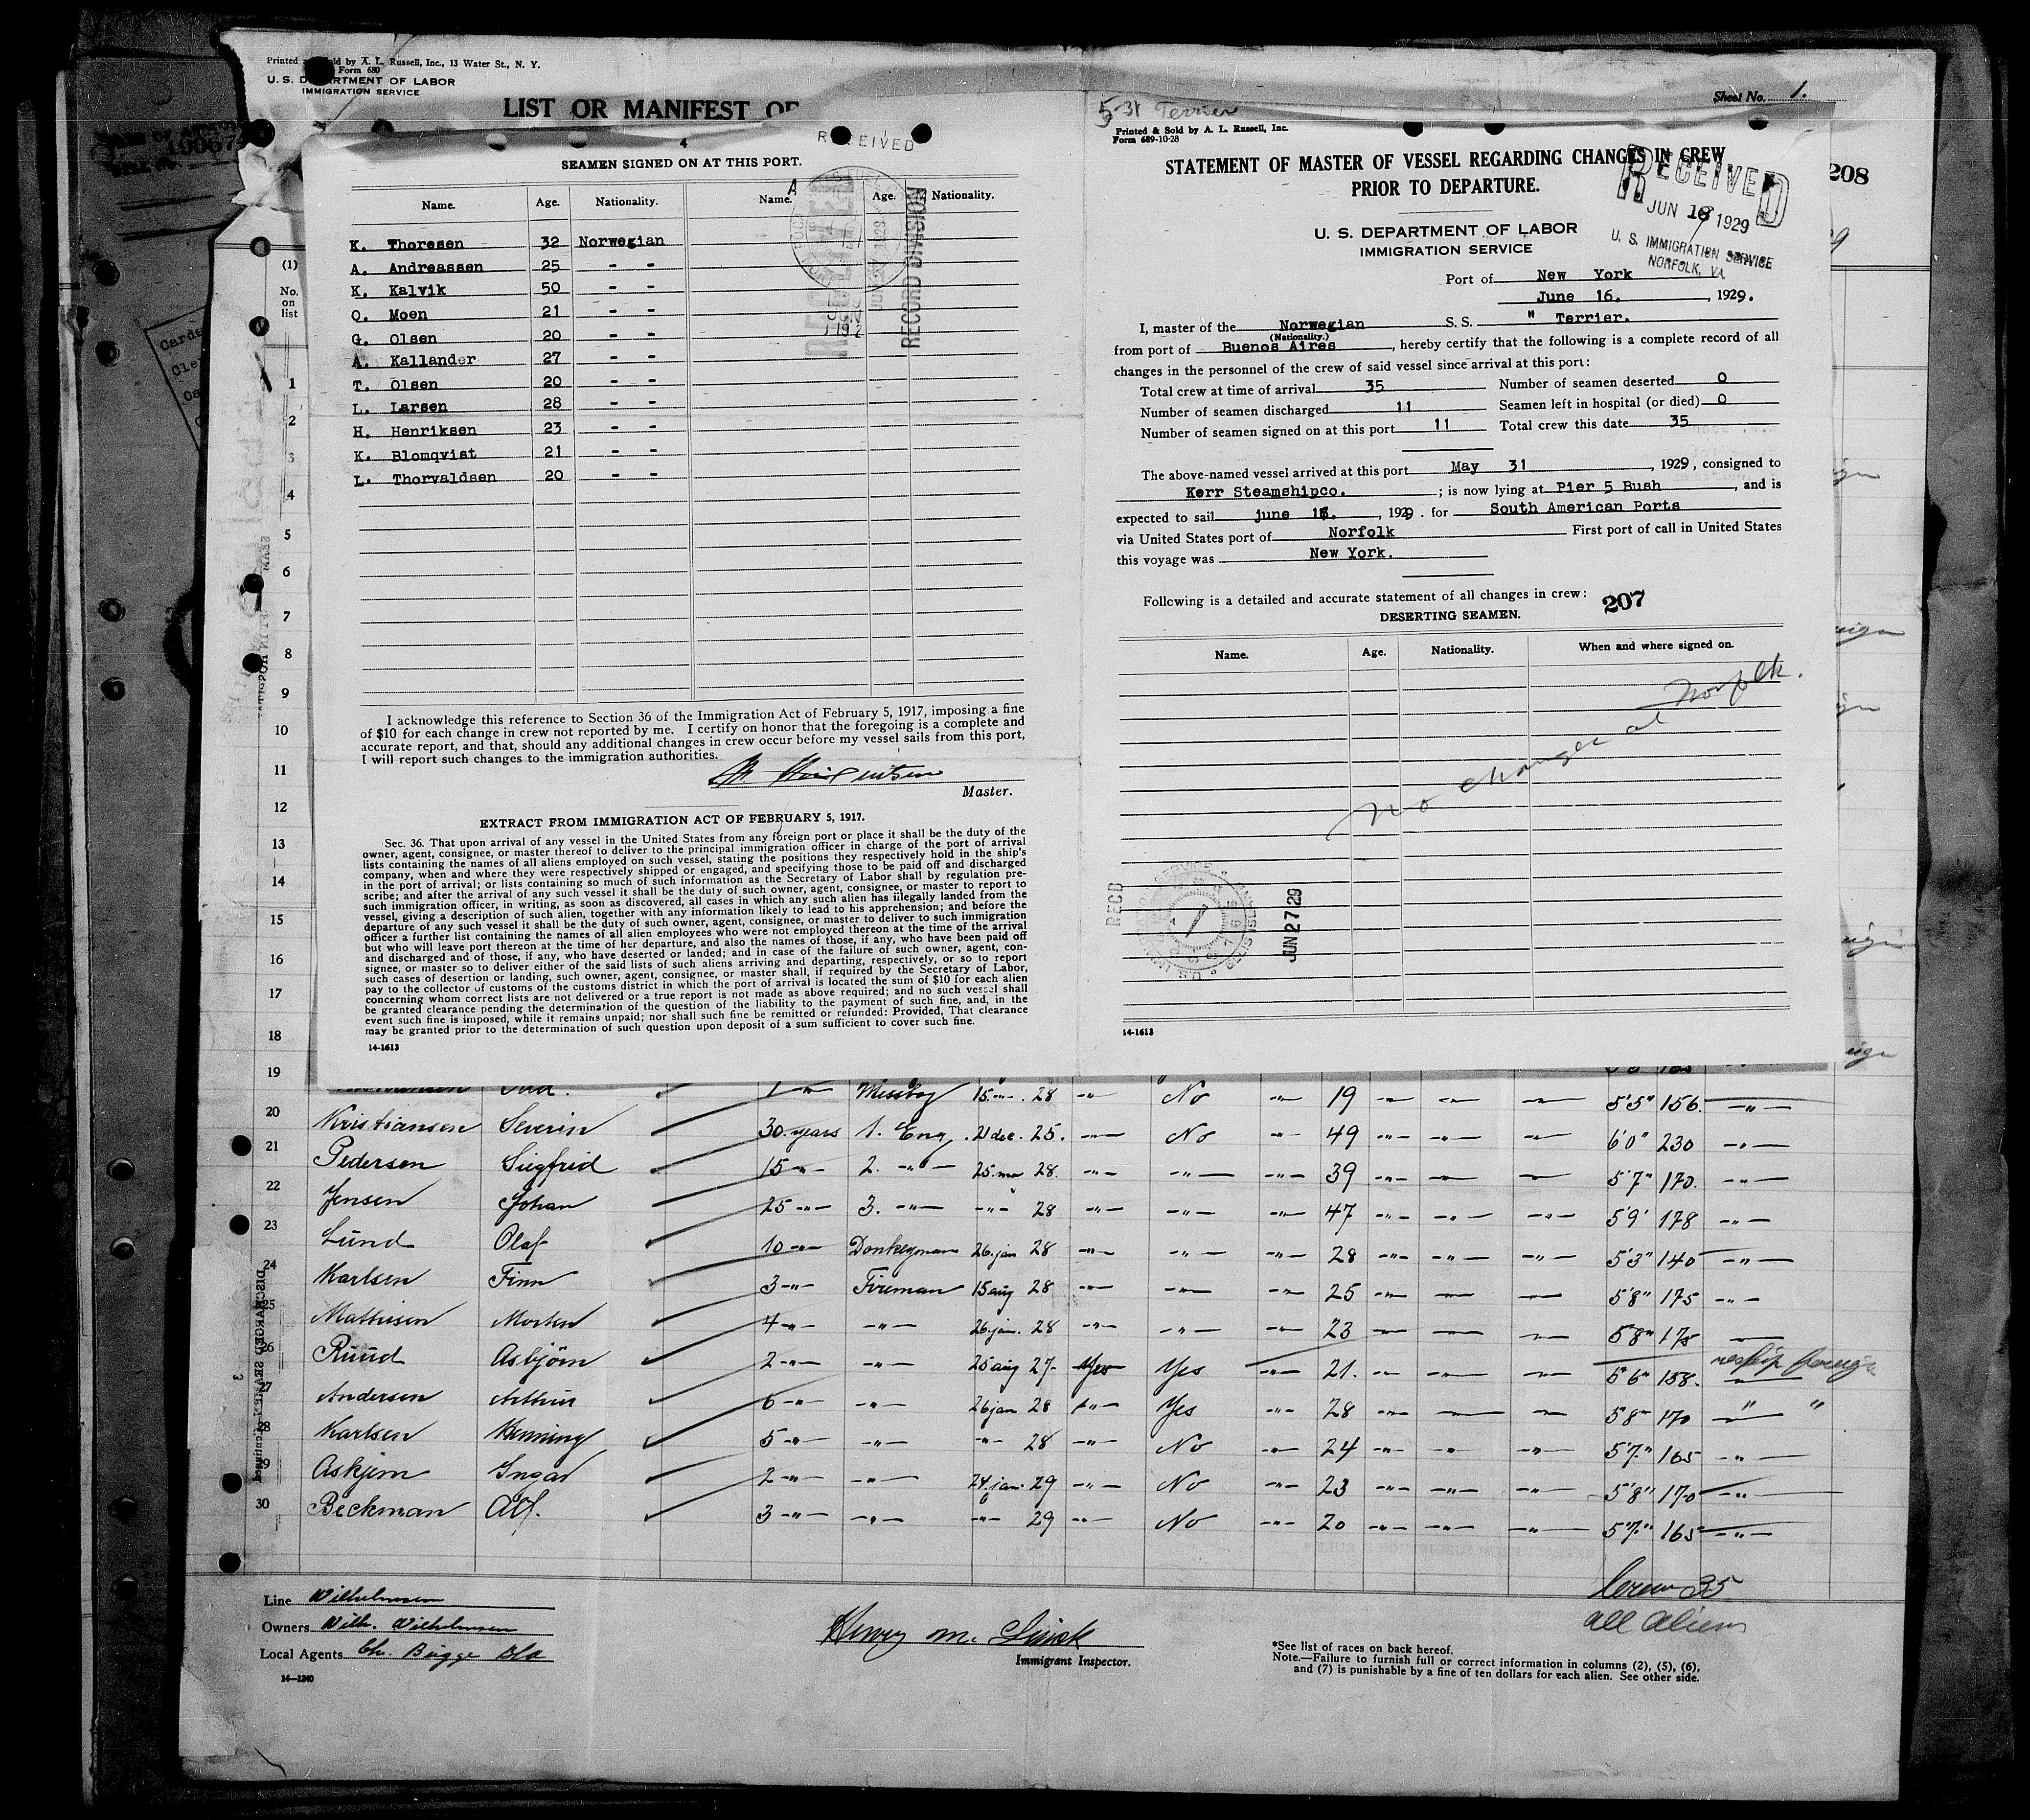 Printed Sold by A. L. Russell, Inc., 13 Water St., N. Y.
Form 680
U. S. DEPARTMENT OF LABOR
IMMIGRATION SERVICE
LIST OR MANIFEST OF
Sheet No. 1.
208
(1)
No.
on
list
4
RECEIVED
SEAMEN SIGNED ON AT THIS PORT.
Name. Age. Nationality. Name. Age. Nationality.
K. Thoresen 32 Norwegian
A. Andreassen 25 - -
K. Kalvik 50 - -
O. Moen 21 - -
G. Olsen 20 - -
A. Kallander 27 - -
T. Olsen 20 - -
L. Larsen 28 - -
H. Henriksen 23 - -
K. Blomqvist 21 - -
L. Thorvaldsen 20 - -
RECORD DIVISION
I acknowledge this reference to Section 36 of the Immigration Act of February 5, 1917, imposing a fine
of $10 for each change in crew not reported by me. I certify on honor that the foregoing is a complete and
accurate report, and that, should any additional changes in crew occur before my vessel sails from this port,
I will report such changes to the immigration authorities.
Master.
EXTRACT FROM IMMIGRATION ACT OF FEBRUARY 5, 1917.
Sec. 36. That upon arrival of any vessel in the United States from any foreign port or place it shall be the duty of the
owner, agent, consignee, or master thereof to deliver to the principal immigration officer in charge of the port of arrival
lists containing the names of all aliens employed on such vessel, stating the positions they respectively hold in the ship's
company, when and where they were respectively shipped or engaged, and specifying those to be paid off and discharged
in the port of arrival; or lists containing so much of such information as the Secretary of Labor shall by regulation pre-
scribe; and after the arrival of any such vessel it shall be the duty of such owner, agent, consignee, or master to report to
such immigration officer, in writing, as soon as discovered, all cases in which any such alien has illegally landed from the
vessel, giving a description of such alien, together with any information likely to lead to his apprehension; and before the
departure of any such vessel it shall be the duty of such owner, agent, consignee, or master to deliver to such immigration
officer a further list containing the names of all alien employees who were not employed thereon at the time of the arrival
but who will leave port thereon at the time of her departure, and also the names of those, if any, who have been paid off
and discharged and of those, if any, who have deserted or landed; and in case of the failure of such owner, agent, con-
signee, or master so to deliver either of the said lists of such aliens arriving and departing, respectively, or so to report
such cases of desertion or landing, such owner, agent, consignee, or master shall, if required by the Secretary of Labor,
pay to the collector of customs of the customs district in which the port of arrival is located the sum of $10 for each alien
concerning whom correct lists are not delivered or a true report is not made as above required; and no such vessel shall
be granted clearance pending the determination of the question of the liability to the payment of such fine, and, in the
event such fine is imposed, while it remains unpaid; nor shall such fine be remitted or refunded: Provided, That clearance
may be granted prior to the determination of such question upon deposit of a sum sufficient to cover such fine.
14-1613
5-31 Terrier
Printed & Sold by A. L. Russell, Inc.
Form 689-10-28
STATEMENT OF MASTER OF VESSEL REGARDING CHANGES IN CREW
PRIOR TO DEPARTURE.
RECEIVED
JUN 1929
U. S. IMMIGRATION SERVICE
NORFOLK, VA.
U. S. DEPARTMENT OF LABOR
IMMIGRATION SERVICE
Port of New York
June 16. , 1929.
I, master of the Norwegian S. S. " Terrier.
(Nationality.)
from port of Buenos Aires , hereby certify that the following is a complete record of all
changes in the personnel of the crew of said vessel since arrival at this port:
Total crew at time of arrival 35 Number of seamen deserted 0
Number of seamen discharged 11 Seamen left in hospital (or died) 0
Number of seamen signed on at this port 11 Total crew this date 35
The above-named vessel arrived at this port May 31 , 1929, consigned to
Kerr Steamshipco. ; is now lying at Pier 5 Bush , and is
expected to sail june , 1929. for South American Ports
via United States port of Norfolk First port of call in United States
this voyage was New York.
Following is a detailed and accurate statement of all changes in crew: 207
DESERTING SEAMEN.
Name. Age. Nationality. When and where signed on.
No changes at Norfolk.
RECD
JUN 27 29
14-1613
1
2
3
4
5
6
7
8
9
10
11
12
13
14
15
16
17
18
19 1 Messboy 15 28 No 19 5'5" 156.
20 Kristiansen Severin 30 years 1. Eng. 21 dec. 25. No 49 6'0" 230
21 Pedersen Siegfrid 15 2. 28. 39 5'7" 170.
22 Jensen Johan 25 3. 28 47 5'9' 178
23 Lund Olaf 10 Donkeyman 26 jan 28 28 5'3" 140
24 Karlsen Finn 3 Fireman 15 aug 28 25 5'8" 175
25 Mathisen Morten 4 26 jan. 28 23 5'8" 175
26 Ruud Asbjörn 2 25 aug 27. Yes Yes 21. 5'6" 158. reship foreign
27 Andersen Arthur 6 26 jan 28 Yes 28 5'8" 170 " "
28 Karlsen Henning 5 28 No 24 5'7" 165
29 Askjem Ingar 2 24 jan. 29 No 23 5'8" 170
30 Beckman Alf. 3 29 No 20 5'7" 165
Crew 35
all aliens
Line Wilhelmsen
Owners Wilh. Wilhelmsen
Local Agents Chr. Bugge
14—1240
Henry M.
Immigrant Inspector.
*See list of races on back hereof.
Note.—Failure to furnish full or correct information in columns (2), (5), (6),
and (7) is punishable by a fine of ten dollars for each alien. See other side.